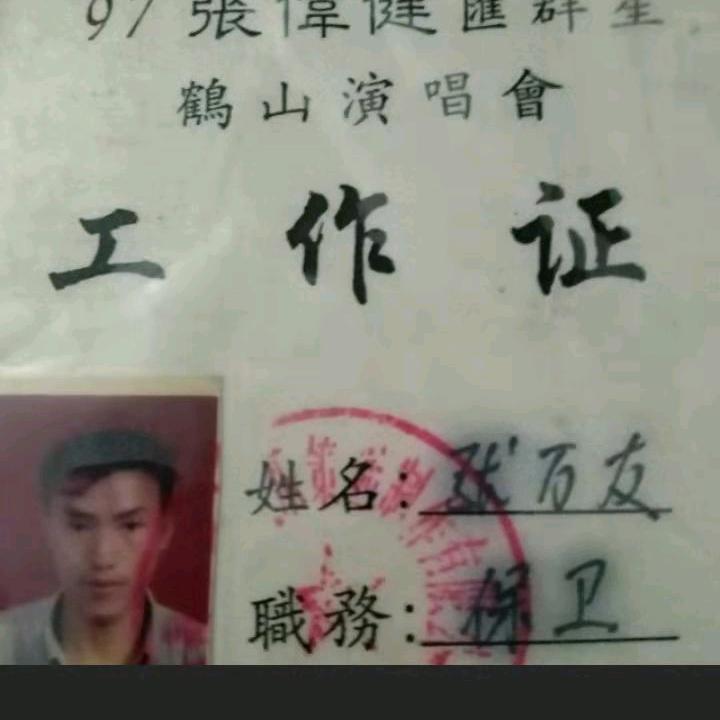 97張偉健匯群星
鶴山演唱會
工作证
姓名：张百友
職務：保卫